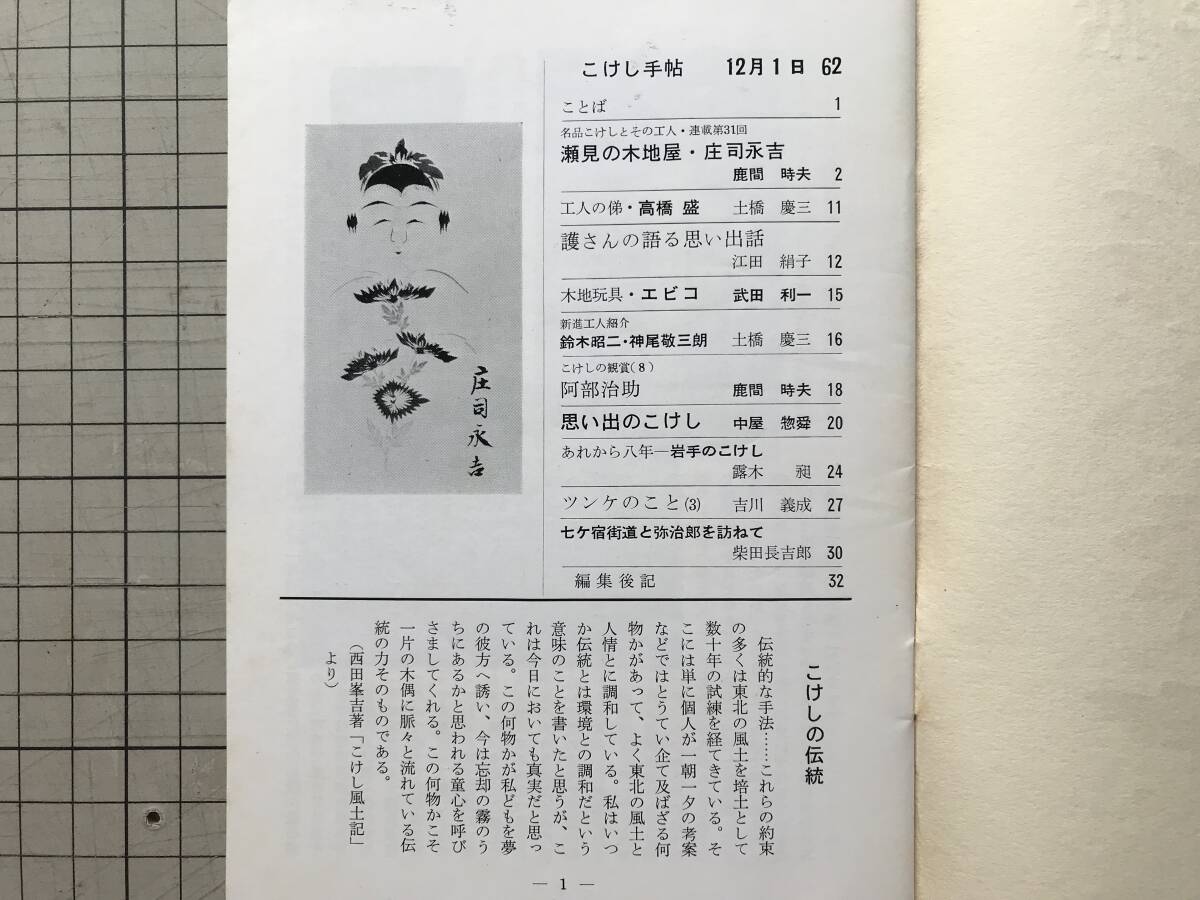 こけし手帖 12月1日 62
ことば 1
名品こけしとその工人・連載第31回
瀬見の木地屋・庄司永吉
鹿間 時夫 2
工人の俤・高橋 盛 土橋 慶三 11
護さんの語る思い出話
江田 絹子 12
木地玩具・エビコ 武田 利一 15
新進工人紹介
鈴木昭二・神尾敬三朗 土橋 慶三 16
こけしの観賞(8)
阿部治助 鹿間 時夫 18
思い出のこけし 中屋 惣舜 20
あれから八年―岩手のこけし
露木 昶 24
ツンケのこと(3) 吉川 義成 27
七ケ宿街道と弥治郎を訪ねて
柴田長吉郎 30
編集後記 32
庄司永吉
こけしの伝統
伝統的な手法……これらの約束
の多くは東北の風土を培土として
数十年の試練を経てきている。そ
こには単に個人が一朝一夕の考案
などではとうてい企て及ばざる何
物かがあって、よく東北の風土と
人情とに調和している。私はいつ
か伝統とは環境との調和だという
意味のことを書いたと思うが、こ
れは今日においても真実だと思っ
ている。この何物かが私どもを夢
の彼方へ誘い、今は忘却の霧のう
ちにあるかと思われる童心を呼び
さましてくれる。この何物かこそ
一片の木偶に脈々と流れている伝
統の力そのものである。
(西田峯吉著「こけし風土記」
より)
― 1 ―